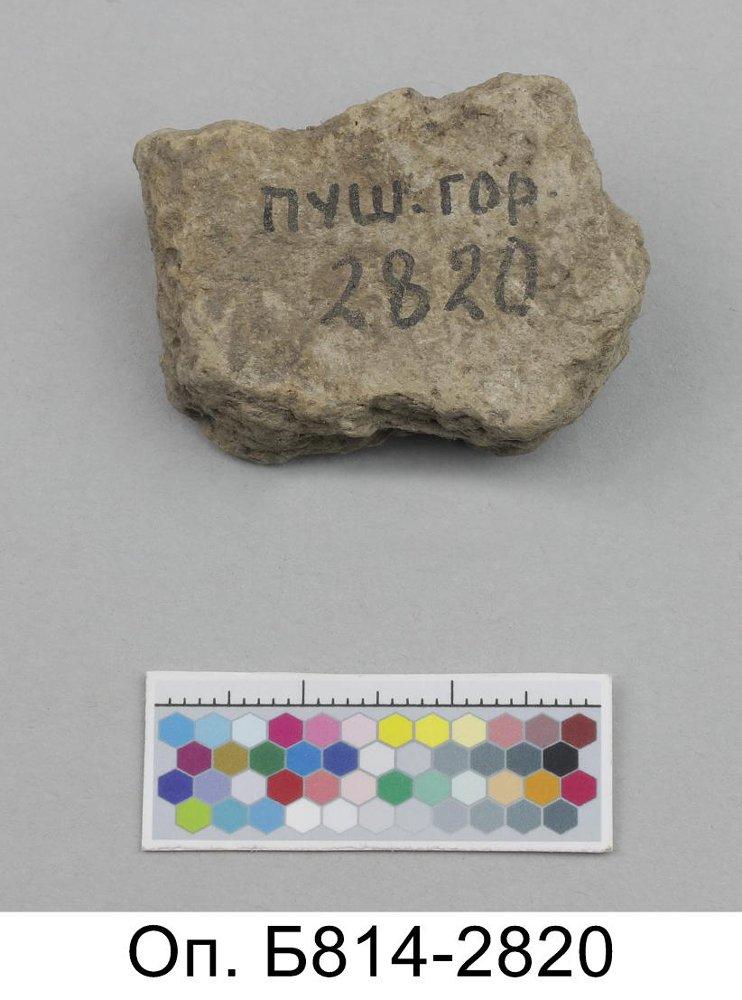 ПУШ.ГОР.
2820
Оп. Б814-2820